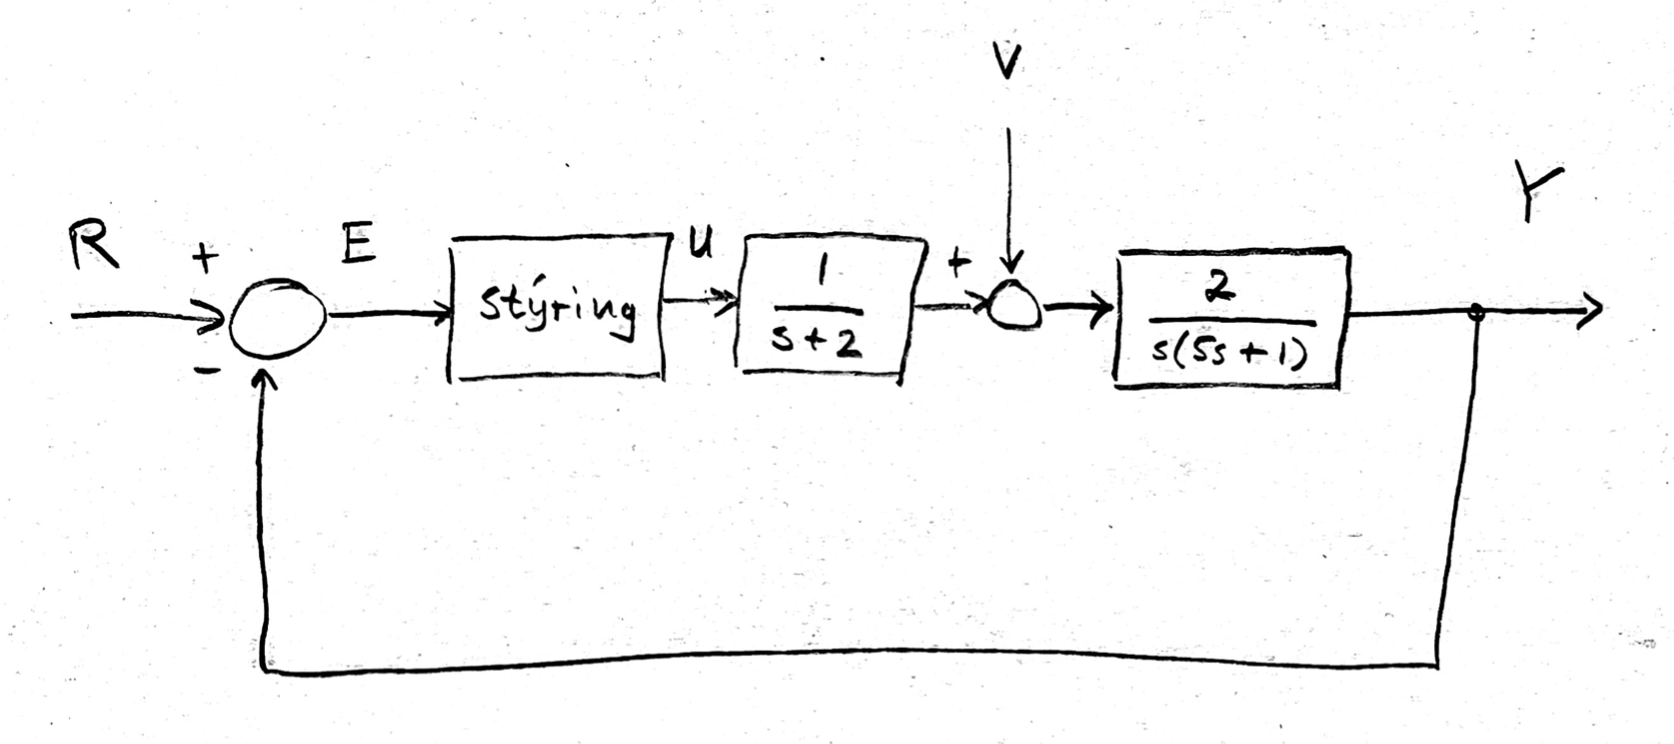 V
Y
R + E stýring u 1/(s+2) + 2/(s(5s+1))
-